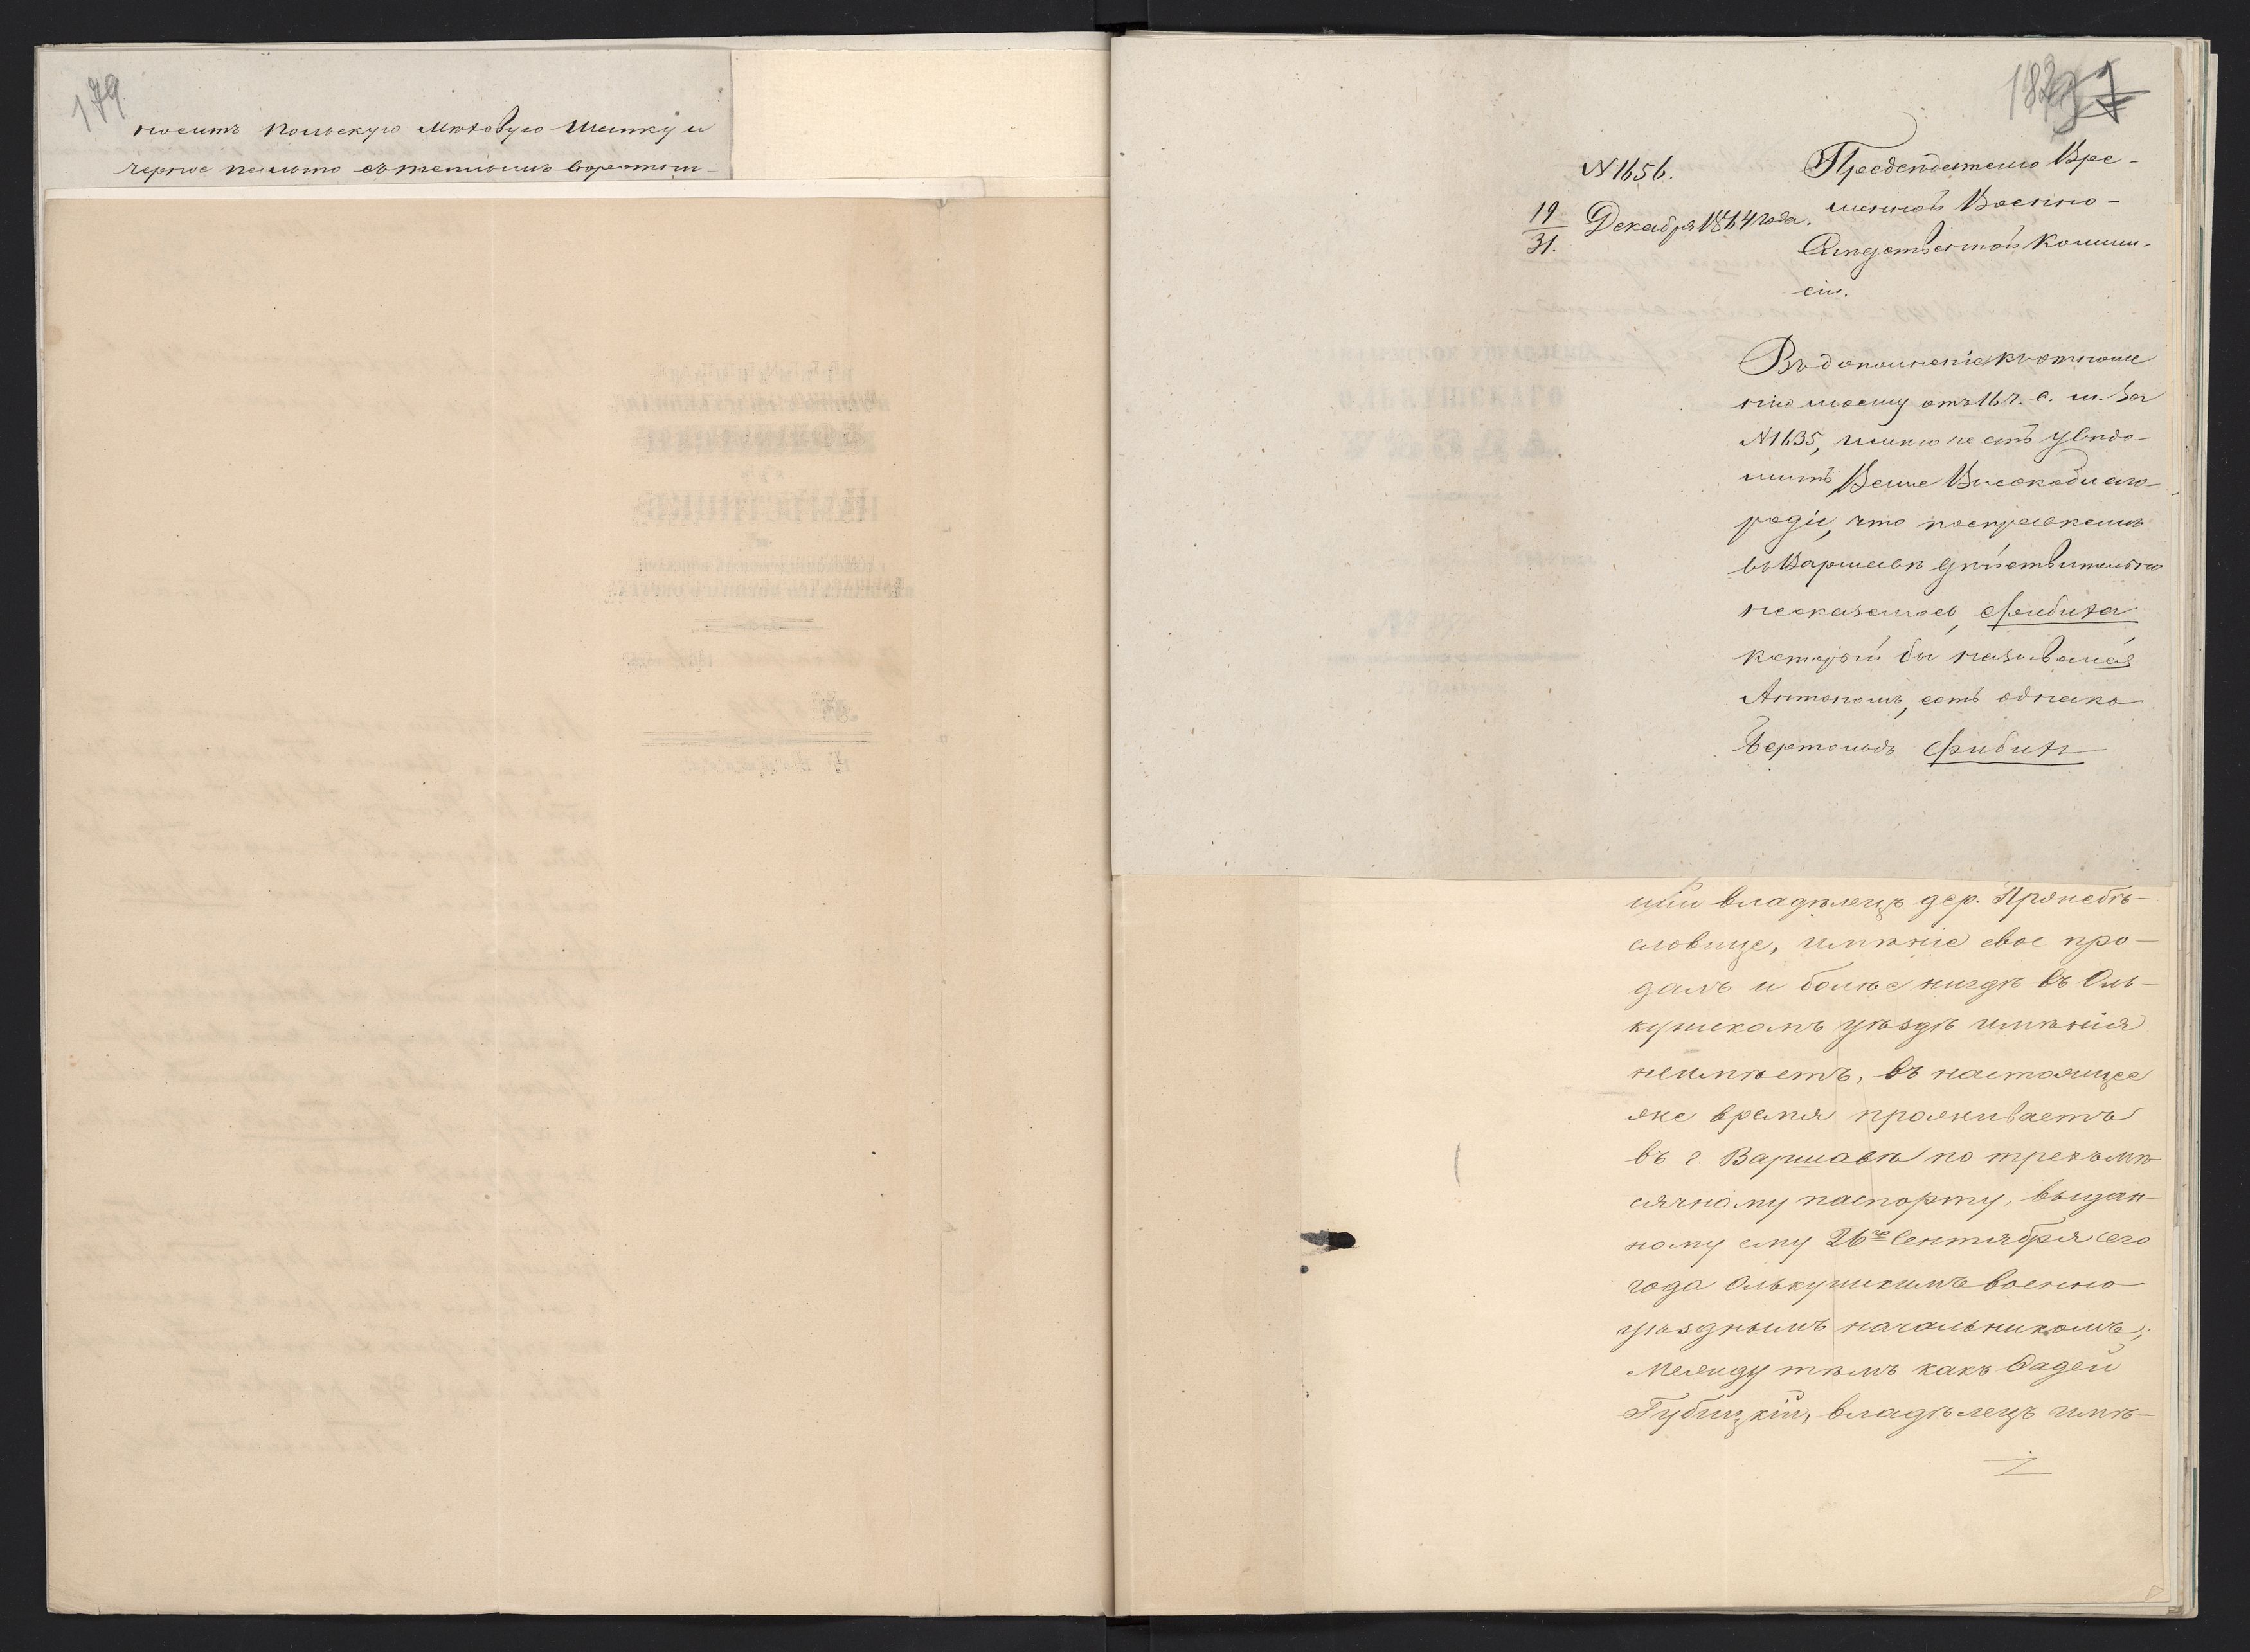 179
носитъ польскую мѣховую шапку и
черное пальто съ теплымъ воротник-
182
N 1656.
19/31. Декабря 1864 года.
Предсѣдателю Вре-
менной Военно-
Слѣдственной Коммис-
сіи.
Въ дополненіе къ отноше
нію моему отъ 16 ч. с. м. за
N 1635, имѣю честь увѣдо-
мить Ваше Высокоблаго-
родіе, что по справкамъ
въ Варшавѣ дѣйствительно
неоказалось, Фибиха
который бы назывался
Антономъ, есть однако
Бертольдъ Фибихъ
цкій владѣлецъ дер.
словице, имѣніе свое про-
далъ и болѣе нигдѣ въ Оль-
кушскомъ уѣздѣ имѣнія
неимѣетъ, въ настоящее
же время проживаетъ
въ г. Варшавѣ по трехъмѣ-
сячному паспорту, выдан-
ному ему 26го Сентября сего
года Олькушскимъ военно
уѣзднымъ начальникомъ;
Между тѣмъ какъ Фадей
Губицкій, владѣлецъ имѣ-